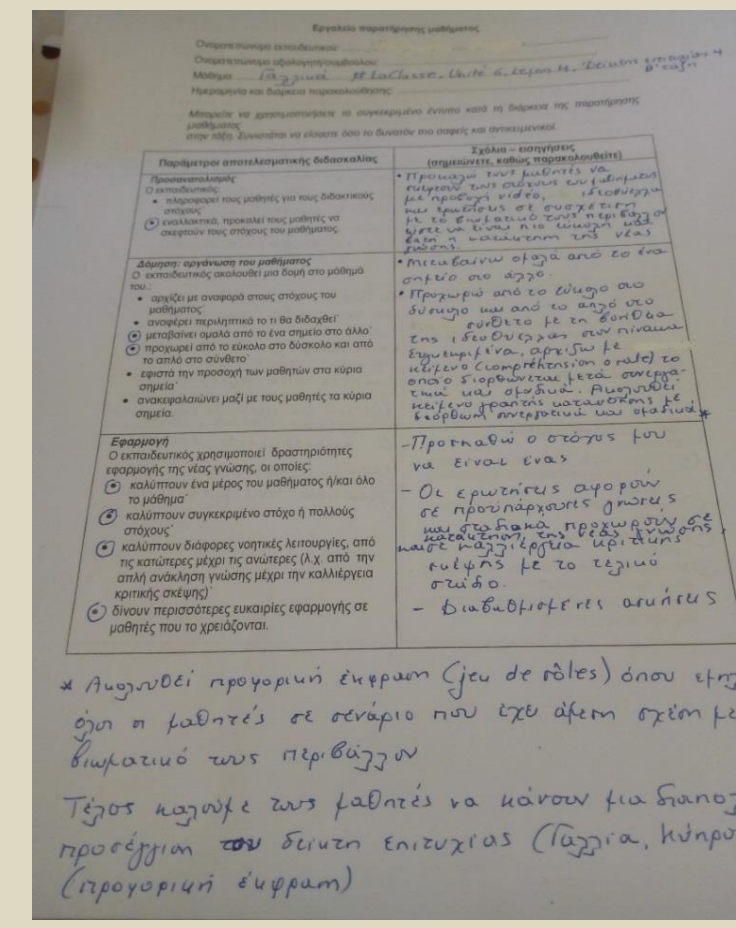 Εργαλείο παρατήρησης μαθήματος
Ονοματεπώνυμο εκπαιδευτικού:
Ονοματεπώνυμο αξιολογητή/συμβούλου:
Μάθημα: Γαλλικά # LaClasse, Unité 6, Leçon 4, Δείκτης επιτυχίας 4
Β' τάξη
Ημερομηνία και διάρκεια παρακολούθησης:
Μπορείτε να χρησιμοποιήσετε το συγκεκριμένο έντυπο κατά τη διάρκεια της παρατήρησης
μαθήματος
στην τάξη. Συνιστάται να είσαστε όσο το δυνατόν πιο σαφείς και αντικειμενικοί.
Παράμετροι αποτελεσματικής διδασκαλίας
Σχόλια – εισηγήσεις
(σημειώνετε, καθώς παρακολουθείτε)
Προσανατολισμός
Ο εκπαιδευτικός:
• πληροφορεί τους μαθητές για τους διδακτικούς
στόχους·
• εναλλακτικά, προκαλεί τους μαθητές να
σκεφτούν τους στόχους του μαθήματος.
• Προκαλώ τους μαθητές να
σκεφτούν τους στόχους του μαθήματος
με προβολή vidéo, ιδεοθύελλα
και ερωτήσεις σε συσχέτιση
με το βιωματικό τους περιβάλλον
ώστε να είναι πιο εύκολη και
η κατάκτηση της νέας
γνώσης.
Δόμηση: οργάνωση του μαθήματος
Ο εκπαιδευτικός ακολουθεί μια δομή στο μάθημά
του.:
• αρχίζει με αναφορά στους στόχους του
μαθήματος·
• αναφέρει περιληπτικά το τι θα διδαχθεί·
• μεταβαίνει ομαλά από το ένα σημείο στο άλλο·
• προχωρεί από το εύκολο στο δύσκολο και από
το απλό στο σύνθετο·
• εφιστά την προσοχή των μαθητών στα κύρια
σημεία·
• ανακεφαλαιώνει μαζί με τους μαθητές τα κύρια
σημεία.
• Μεταβαίνω ομαλά από το ένα
σημείο στο άλλο.
• Προχωρώ από το εύκολο στο
δύσκολο και από το απλό στο
σύνθετο με τη βοήθεια
της ιδεοθύελλας στον πίνακα
Συγκεκριμένα, αρχίζω με
κείμενο (compréhension orale) το
οποίο διορθώνεται μετά συνεργα-
τικά και ομαδικά. Ακολουθεί
κείμενο γραπτής κατανόησης με
διόρθωση συνεργατικά και ομαδικά *
Εφαρμογή
Ο εκπαιδευτικός χρησιμοποιεί δραστηριότητες
εφαρμογής της νέας γνώσης, οι οποίες:
• καλύπτουν ένα μέρος του μαθήματος ή/και όλο
το μάθημα·
• καλύπτουν συγκεκριμένο στόχο ή πολλούς
στόχους·
• καλύπτουν διάφορες νοητικές λειτουργίες, από
τις κατώτερες μέχρι τις ανώτερες (λ.χ. από την
απλή ανάκληση γνώσης μέχρι την καλλιέργεια
κριτικής σκέψης)·
• δίνουν περισσότερες ευκαιρίες εφαρμογής σε
μαθητές που το χρειάζονται.
- Προσπαθώ ο στόχος μου
να είναι ένας
- Οι ερωτήσεις αφορούν
σε προϋπάρχουσες γνώσεις
και σταδιακά προχωρούν σε
κατάκτηση της νέας γνώσης,
και σε καλλιέργεια κριτικής
σκέψης με το τελικό
στάδιο.
- Διαβαθμισμένες ασκήσεις
* Ακολουθεί προφορική έκφραση (jeu de rôles) όπου εμπλ
όλοι οι μαθητές σε σενάριο που έχει άμεση σχέση με
βιωματικό τους περιβάλλον
Τέλος καλούμε τους μαθητές να κάνουν μια διαπολ
προσέγγιση του δείκτη επιτυχίας (Γαλλία, Κύπρο
(προφορική έκφραση)